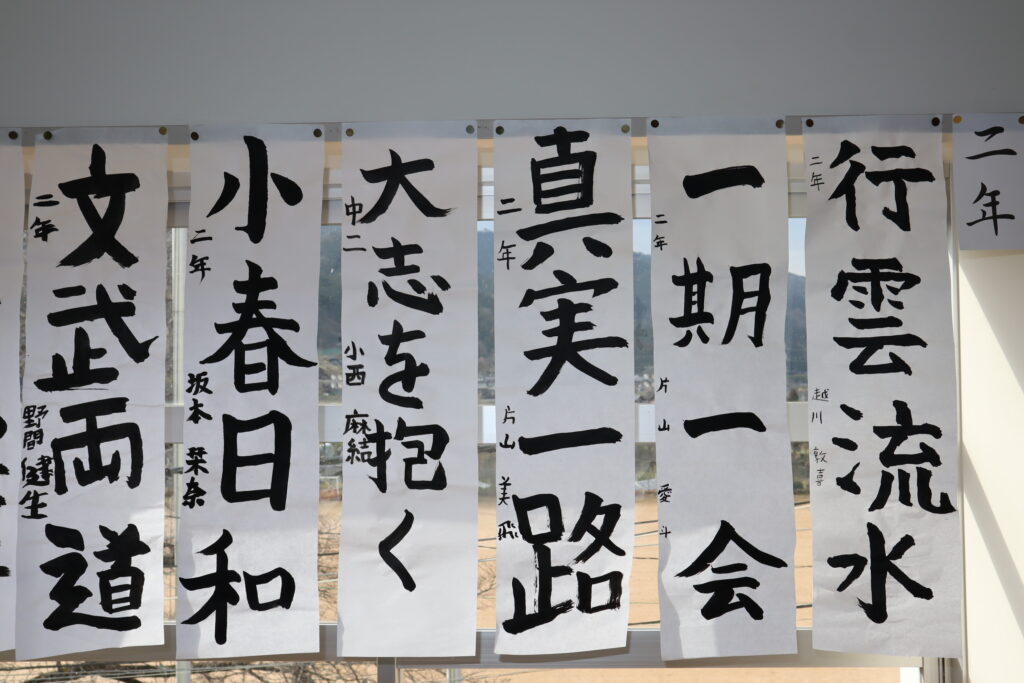 二年
行雲流水
二年
越川 敦喜
一期一会
二年
片山 愛斗
真実一路
二年
片山 美飛
大志を抱く
中二
小西 麻結
小春日和
二年
坂本 栞奈
文武両道
二年
野間 健生